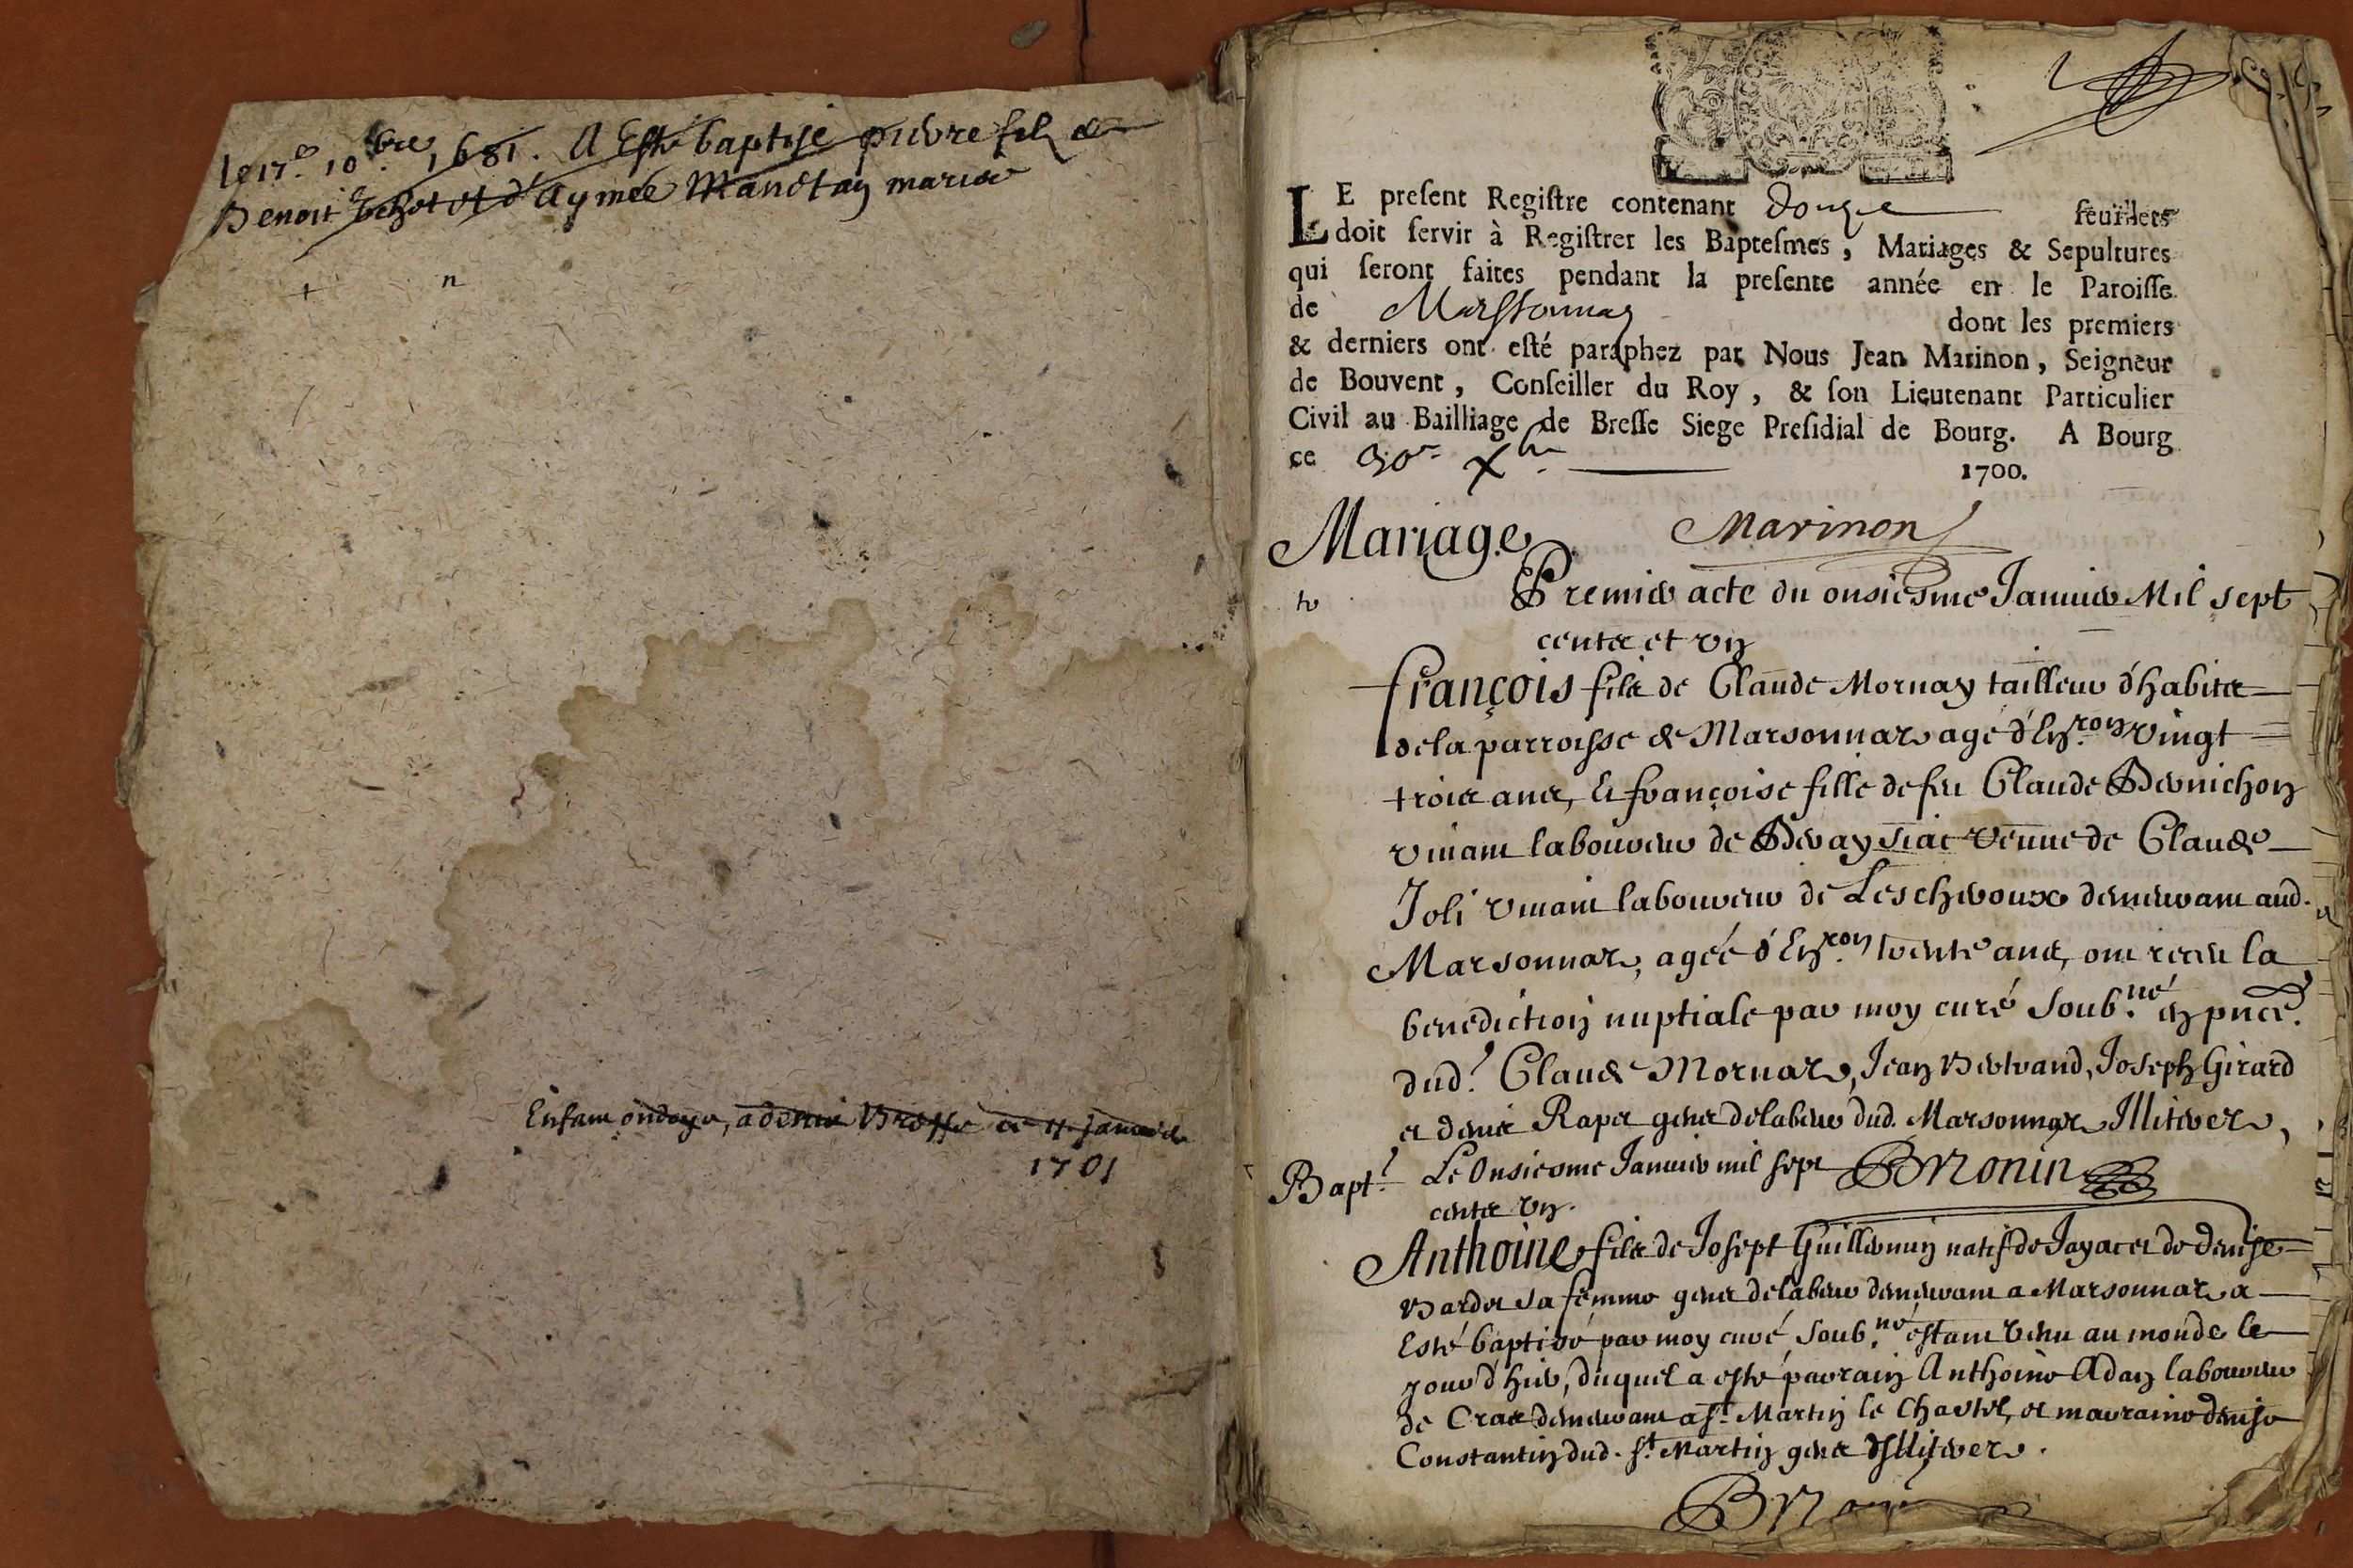 le 17e 10bre 1681. A Esté baptisé pierre filz de
Benoit et d'Aymée mariés
LE present Registre contenant douze feuillets
doit servir à Registrer les Baptesmes, Mariages & Sepultures
qui seront faites pendant la presente année en le Paroisse
de Marssonnas dont les premiers
& derniers ont esté paraphez par Nous Jean Marinon, Seigneur
de Bouvent, Conseiller du Roy, & son Lieutenant Particulier
Civil au Bailliage de Bresse Siege Presidial de Bourg. A Bourg
ce 30e Xbre 1700.
Mariage Marinon
Premier acte du onsiesme Januier Mil sept
cents et vn
françois fils de Claude Mornay tailleur d'habits
de la parroisse de Marsonnaz agé d'Enron vingt
trois ans, Et françoise fille de feu Claude Pernichon
viuant laboureur de veuue de Claude
Joli viuant laboureur de Lescheroux demeurant aud.
Marsonnaz, agée d'Enron trente ans, ont receu la
benediction nuptiale par moy curé soub.né en pnce.
dud. Claude Mornaz, Jean Bertrand, Joseph Girard
et denis Rapet gens de labeur dud. Marsonnaz Illiterez,
Bapt. Le Onsiesme Januier mil sept BMonin
cents vn.
Anthoine fils de Josept Guillemin natif de Jayat et de denise
Bardet sa femme gens de labeur demeurant a Marsonnaz a
Esté baptisé par moy curé soub.né estant venu au monde le
jour d'hier, duquel a esté parrain Anthoine Adan laboureur
de Cras demeurant a st. Martin le Chastel, et marraine denise
Constantin dud. st. Martin gens Illiterez.
BMonin
Enfant ondoyé, a denis Brosse ce 11 januier
1701